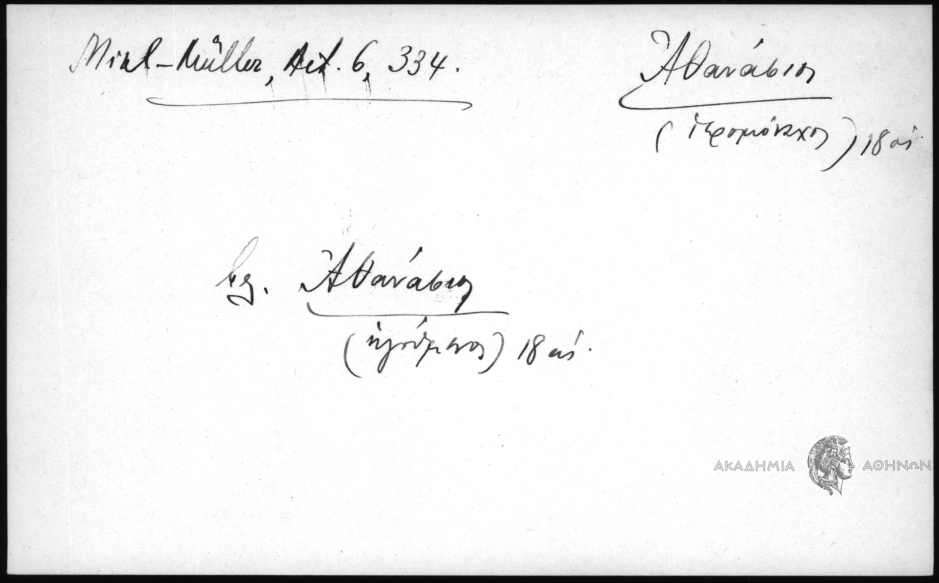 Mikl-Müller, Act. 6, 334.
Ἀθανάσιος
(ἱερομόναχος) 18 αἰ.
Ἀθανάσιος
(ἡγούμενος) 18 αἰ.
ΑΚΑΔΗΜΙΑ ΑΘΗΝΩΝ